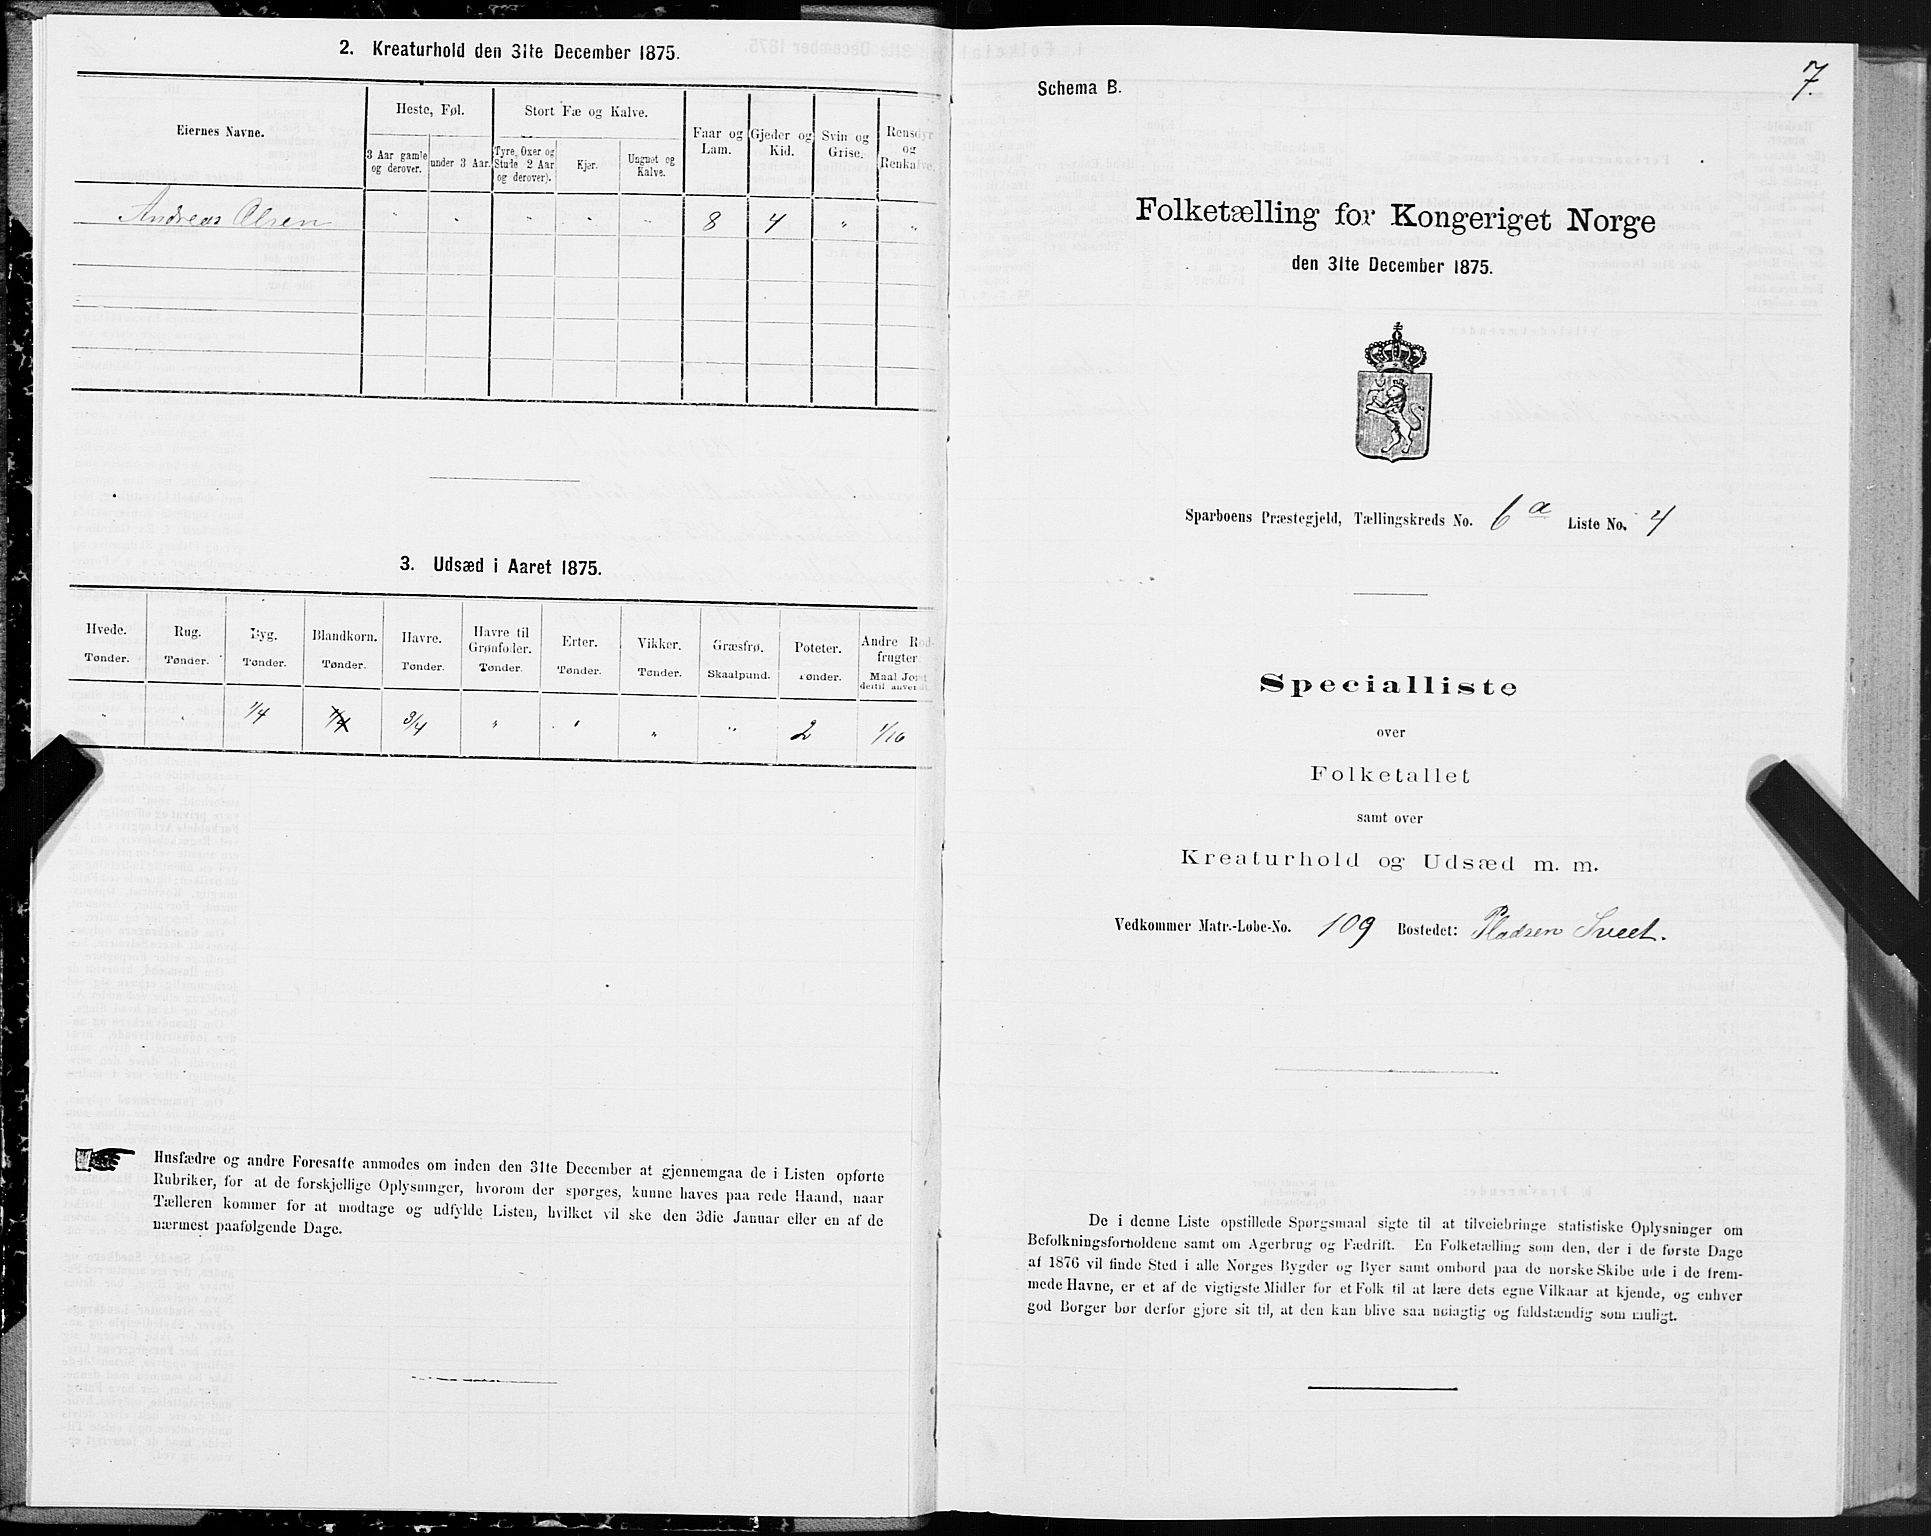 2. Kreaturhold den 31te December 1875.
Eiernes Navne.
Heste, Føl.
Stort Fæ og Kalve.
3 Aar gamle og derover.
under 3 Aar.
Tyre, Oxer og Stude 2 Aar og derover).
Kjør.
Ungnøt og Kalve.
Faar og Lam.
Gjeder og Kid.
Svin og Grise.
Rensdyr og Renkalve.
Andreas Olsen " " " " " 8 4 " "
3. Udsæd i Aaret 1875.
Hvede. Rug. Byg. Blandkorn. Havre. Havre til Grønfoder. Erter. Vikker. Græsfrø. Poteter. Andre Rodfrugter
Tønder. Tønder. Tønder. Tønder. Tønder. Tønder. Tønder. Tønder. Skaalpund. Tønder. Maal Jord dertil anvendt.
" " 1/4 1/4 3/4 " " " " 2 1/10
Husfædre og andre Foresatte anmodes om inden den 31te December at gjennemgaa de i Listen opførte
Rubriker, for at de forskjellige Oplysninger, hvorom der spørges, kunne haves paa rede Haand, naar
Tælleren kommer for at modtage og udfylde Listen, hvilket vil ske den 3die Januar eller en af de
nærmest paafølgende Dage.
7.
Schema B.
Folketælling for Kongeriget Norge
den 31te December 1875.
Sparboens Præstegjeld, Tællingskreds No. 6 a Liste No. 4
Specialliste
over
Folketallet
samt over
Kreaturhold og Udsæd m. m.
Vedkommer Matr.-Løbe-No. 109 Bostedet: Pladsen Sveet.
De i denne Liste opstillede Spørgsmaal sigte til at tilveiebringe statistiske Oplysninger om
Befolkningsforholdene samt om Agerbrug og Fædrift. En Folketælling som den, der i de første Dage
af 1876 vil finde Sted i alle Norges Bygder og Byer samt ombord paa de norske Skibe ude i de frem-
mede Havne, er et af de vigtigste Midler for et Folk til at lære dets egne Vilkaar at kjende, og enhver
god Borger bør derfor gjøre sit til, at den kan blive saa nøiagtig og fuldstændig som muligt.